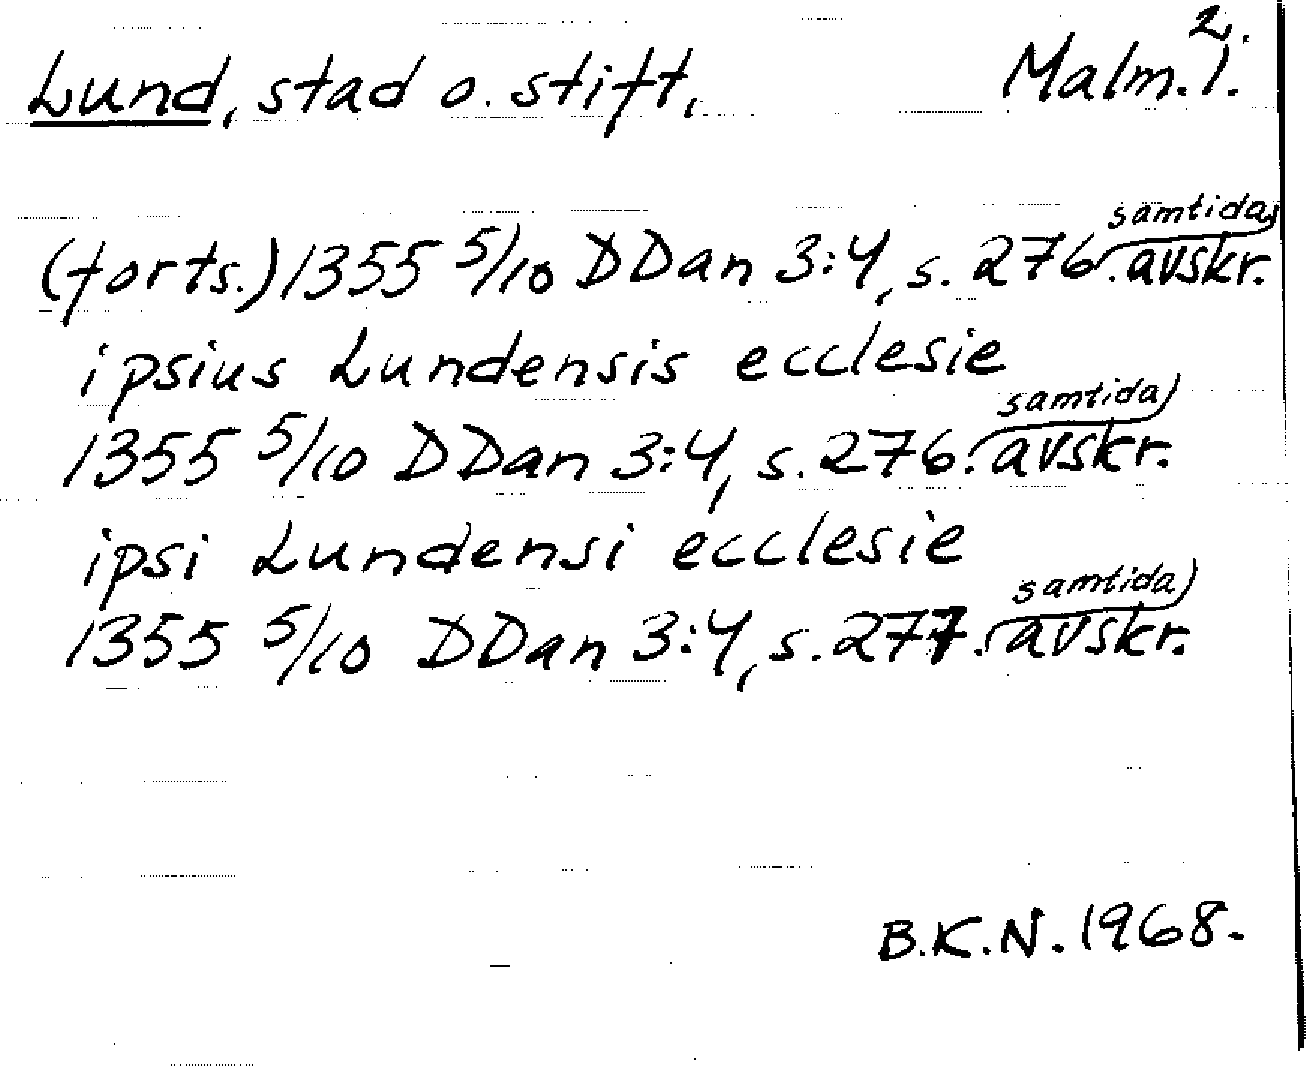 2.
Lund, stad o. stift. Malm. l.
(forts.) 1355 5/10 DDan 3:4, s. 276. samtida avskr.
ipsius Lundensis ecclesie
1355 5/10 DDan 3:4, s. 276. samtida avskr.
ipsi Lundensi ecclesie
1355 5/10 DDan 3:4, s. 277. samtida avskr.
B.K.N. 1968.